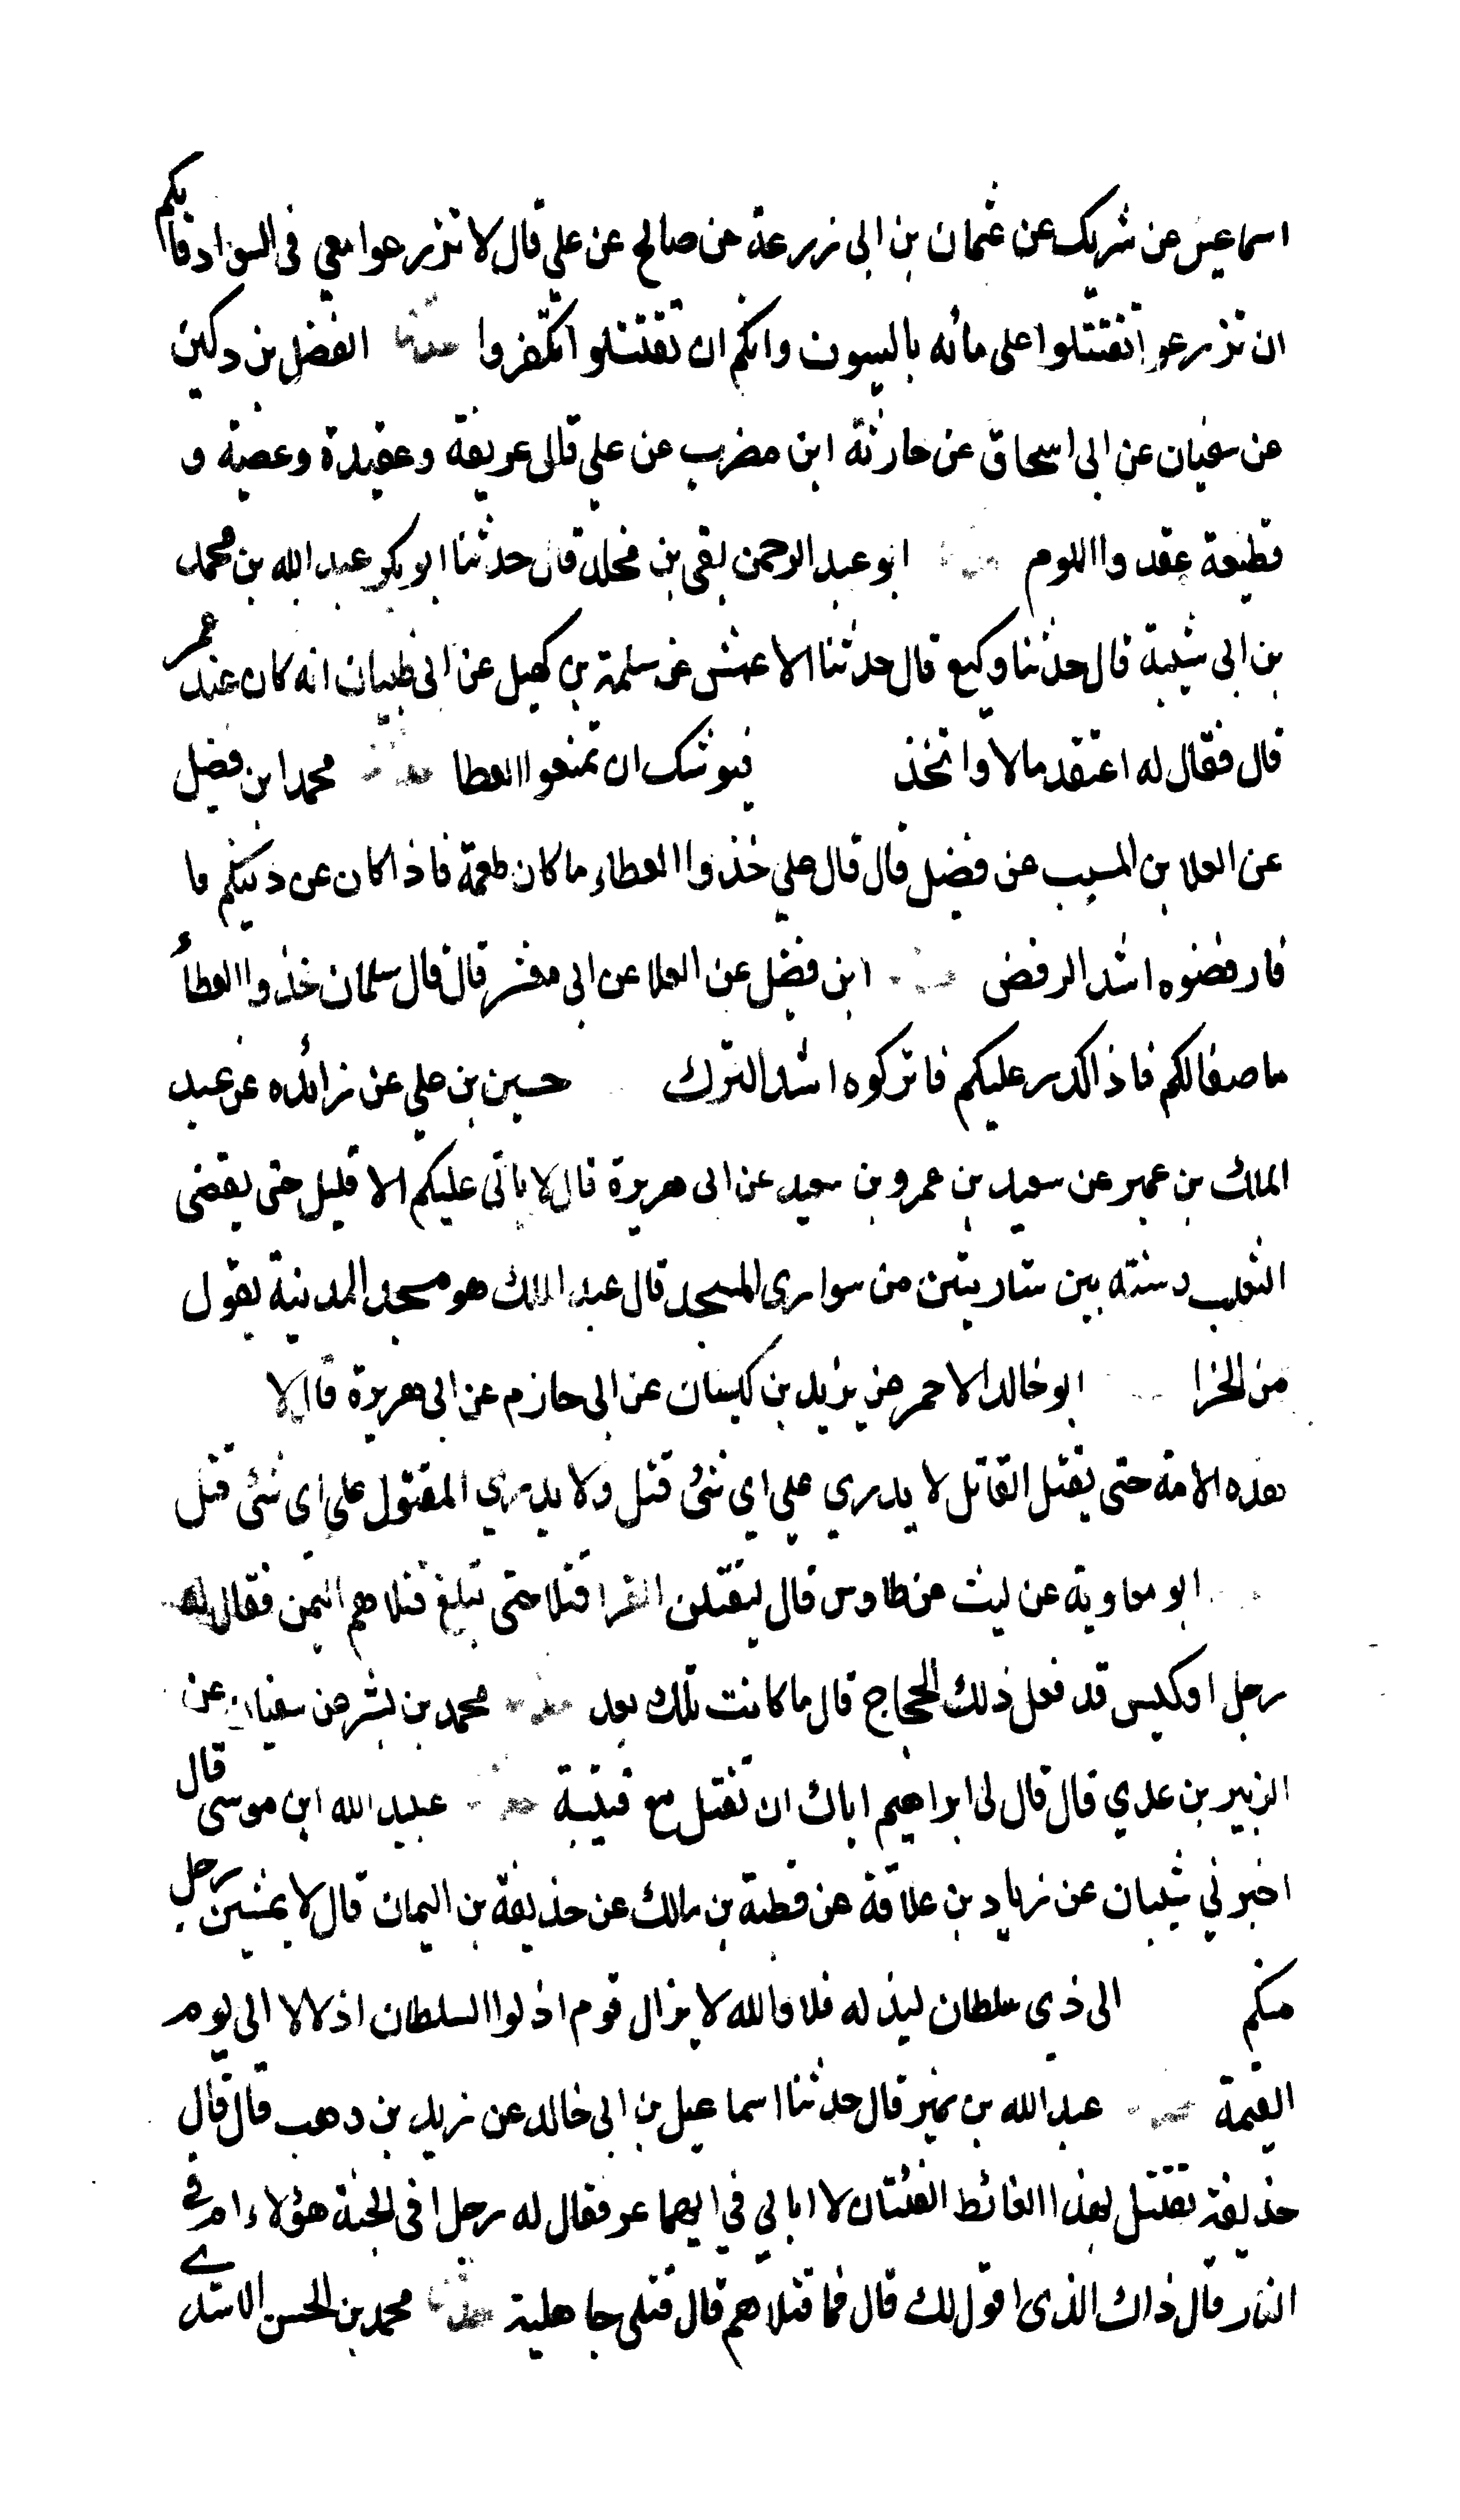 اسماعيل عن شريك عن عثمان بن ابى زرعة عن صالح عن علي قال لا تزرعوا معي فى السواد فانكم
ان تزرعوا تقتتلوا على مائه بالسيوف وانكم ان تقتتلوا تكفروا حدثنا الفضل بن دكين
عن سفيان عن ابى اسحاق عن حارثة ابن مضرب عن علي قال عريفة وعقيدة وعصبة و
قطيعة عقدوا اللوم حدثنا ابو عبد الرحمن بقى بن مخلد قال حدثنا ابو بكر عبد الله بن محمد
بن ابى شيبة قال حدثنا وكيع قال حدثنا الاعمش عن سلمة بن كهيل عن ابى ظبيان انه كان عند عمر
قال فقال له اعتقد مالا واتخذ فيوشك ان تمنعوا العطا حدثنا محمد ابن فضيل
عن العلا بن المسيب عن فضيل قال قال علي خذوا العطاء ما كان طعمة فاذا كان عن دينكم ما
فارفضوه اشد الرفض حدثنا ابن فضيل عن العلا عن ابى معشر قال قال سلمان خذوا العطاء
ما صفا لكم فاذا كدر عليكم فاتركوه اشد الترك حسين بن علي عن زائده عن عبد
الملك بن عمير عن سعيد بن عمرو بن سعيد عن ابى هريرة قال لا ياتى عليكم الا قليل حتى يقضى
الثعلب دسنته بين ساريتين من سوارى المسجد قال عبد الملك هو مسجد المدينة يقول
من الخرا ابو خالد الاحمر عن يزيد بن كيسان عن ابى حازم عن ابى هريرة قال لا
هذه الامة حتى يقتل القاتل لا يدري علي اي شئ قتل ولا يدري المقتول على اى شئ قتل
ابو معاوية عن ليث عن طاوس قال ليقتلن القرا قتلا حتى تبلغ قتلاهم اليمن فقال له
رجل اوليس قد فعل ذلك الحجاج قال ما كانت تلك بعد حدثنا محمد بن بشر عن سفيان عن
الزبير بن عدي قال قال لى ابراهيم اياك ان تقتل مع قتيبة حدثنا عبيد الله ابن موسى قال
اخبرني شيبان عن زياد بن علاقة عن قطبة بن مالك عن حذيفة بن اليمان قال لا يمشين رجل
منكم الى ذي سلطان ليذله فلا والله لا يزال قوم اذلوا السلطان اذلالا الى يوم
القيمة حدثنا عبد الله بن نمير قال حدثنا اسماعيل بن ابى خالد عن زيد بن وهب قال قال
حذيفة تقتتل بهذا الغائط الفئتان لا ابالي في ايهما عر فقال له رجل افى الجنة هؤلاء ام في
النار قال ذاك الذى اقول لك قال فما قتلاهم قال قتلى جاهلية حدثنا محمد بن الحسن الاسدي